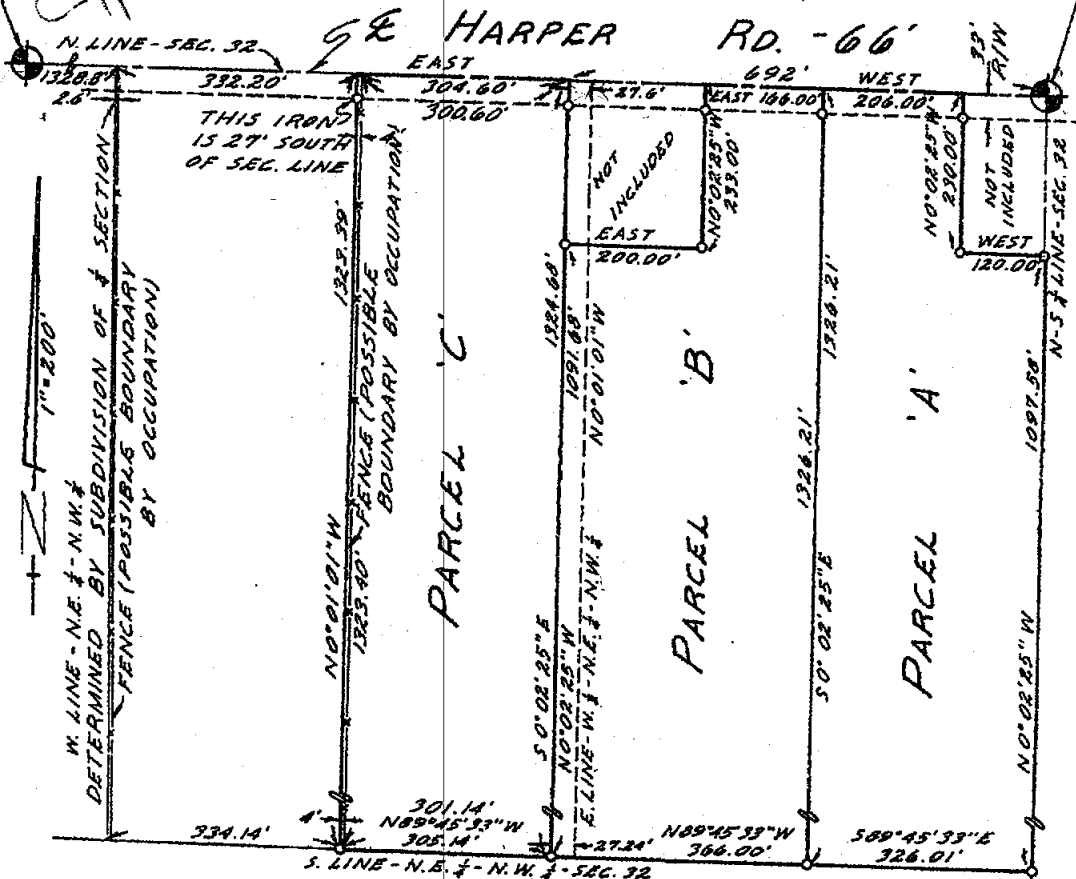 ℄ HARPER RD. - 66'
N. LINE - SEC. 32
1328.8'
2.6'
332.20'
EAST
304.60'
300.60'
27.6'
692'
WEST
EAST 166.00'
206.00'
33'
R/W
THIS IRON
IS 27' SOUTH
OF SEC. LINE
4'
NOT
INCLUDED
N0°02'25"W
233.00'
EAST
200.00'
N0°02'25"W
230.00'
NOT
INCLUDED
WEST
120.00'
N-S ¼ LINE-SEC. 32
N
1"=200'
W. LINE - N.E. ¼ - N.W. ¼
DETERMINED BY SUBDIVISION OF ¼ SECTION
FENCE (POSSIBLE BOUNDARY
BY OCCUPATION)
1323.39'
N0°01'01"W
1323.40'
FENCE (POSSIBLE
BOUNDARY BY OCCUPATION)
PARCEL 'C'
1324.68'
1091.68'
S0°02'25"E
N0°02'25"W
N0°01'01"W
E. LINE - W. ½ - N.E. ¼ - N.W. ¼
PARCEL 'B'
1326.21'
1326.21'
S0°02'25"E
PARCEL 'A'
1097.58'
N0°02'25"W
334.14'
4'
301.14'
N89°45'33"W
305.14'
27.24'
N89°45'33"W
366.00'
S89°45'33"E
326.01'
S. LINE - N.E. ¼ - N.W. ¼ - SEC. 32